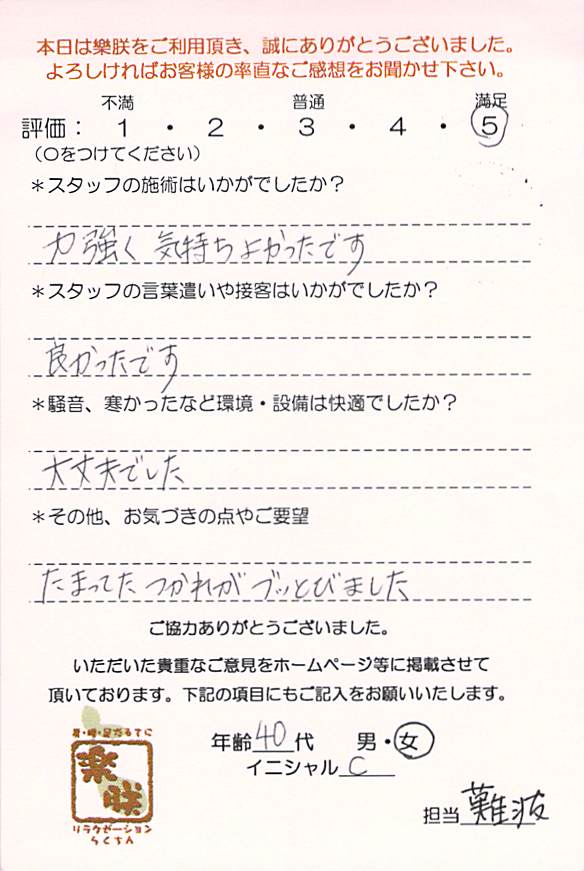 本日は樂朕をご利用頂き、誠にありがとうございました。
よろしければお客様の率直なご感想をお聞かせ下さい。
不満 普通 満足
評価： 1 ・ 2 ・ 3 ・ 4 ・ 5
（○をつけてください）
＊スタッフの施術はいかがでしたか？
力強く 気持ちよかったです
＊スタッフの言葉遣いや接客はいかがでしたか？
良かったです
＊騒音、寒かったなど環境・設備は快適でしたか？
大丈夫でした
＊その他、お気づきの点やご要望
たまってた つかれが ブッとびました
ご協力ありがとうございました。
いただいた貴重なご意見をホームページ等に掲載させて
頂いております。下記の項目にもご記入をお願いいたします。
年齢 40 代 男・女
イニシャル C
担当 難波
樂朕
リラクゼーション
らくちん